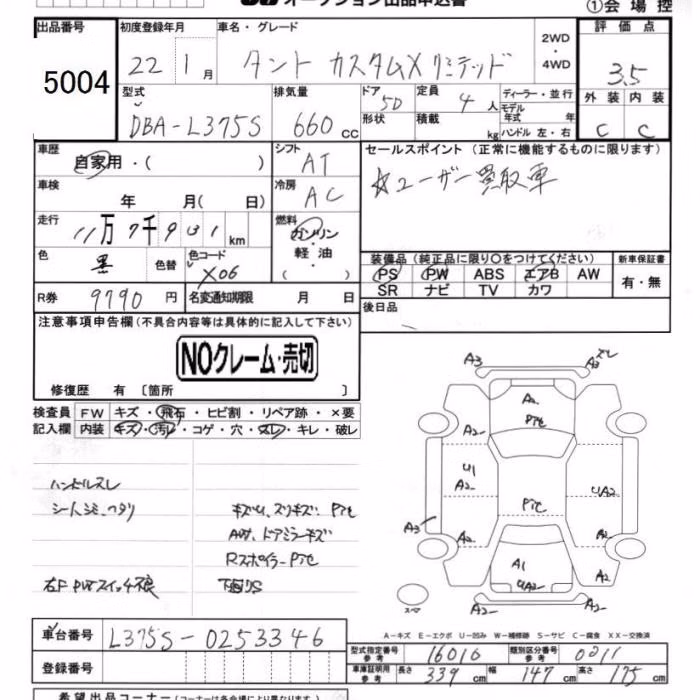 オークション出品申込書
①会場控
出品番号 初度登録年月 車名・グレード 評価点
5004 22 1月 タント カスタムX リミテッド 2WD・4WD 3.5
型式 排気量 ドア 5D 定員 4人 ディーラー・並行 外装 内装
DBA-L375S 660cc 形状 積載 kg モデル年式 年式 C C
ハンドル 左・右
車歴 自家用・( ) シフト AT セールスポイント(正常に機能するものに限ります)
車検 年 月( 日) 冷房 AC ☆ユーザー買取車
走行 11万7千931km 燃料 ガソリン・軽油・( )
色 黒 色替 色コード X06 装備品(純正品に限り○をつけてください) 新車保証書
PS PW ABS エアB AW 有・無
SR ナビ TV カワ
R券 9790円 名変通知期限 月 日 後日品
注意事項申告欄(不具合内容等は具体的に記入して下さい)
NOクレーム・売切
修復歴 有 〔箇所 〕
検査員 FW キズ・飛石・ヒビ割・リペア跡・×要
記入欄 内装 キズ・汚レ・コゲ・穴・スレ・キレ・破レ
ハンドルスレ
シートシミ、ヘタリ
キズU、スリキズ、Pアセ
AW、ドアミラーキズ
RスポイラーPアセ
右F PWスイッチ不良 下廻りS
A3 A3 スレ
A2 Pアセ
A2 A2
U1 A2 UA2
Pアセ
A3 A2 A2
A1
A2 UA2 A2
スペア
A-キズ E-エクボ U-凹み W-補修跡 S-サビ C-腐食 XX-交換済
車台番号 L375S-0253346
登録番号
型式指定番号 参考 16010 類別区分番号 参考 0211
車庫証明用 参考 長さ 339cm 幅 147cm 高さ 175cm
希望出品コーナー(コーナーは各会場により異なります)